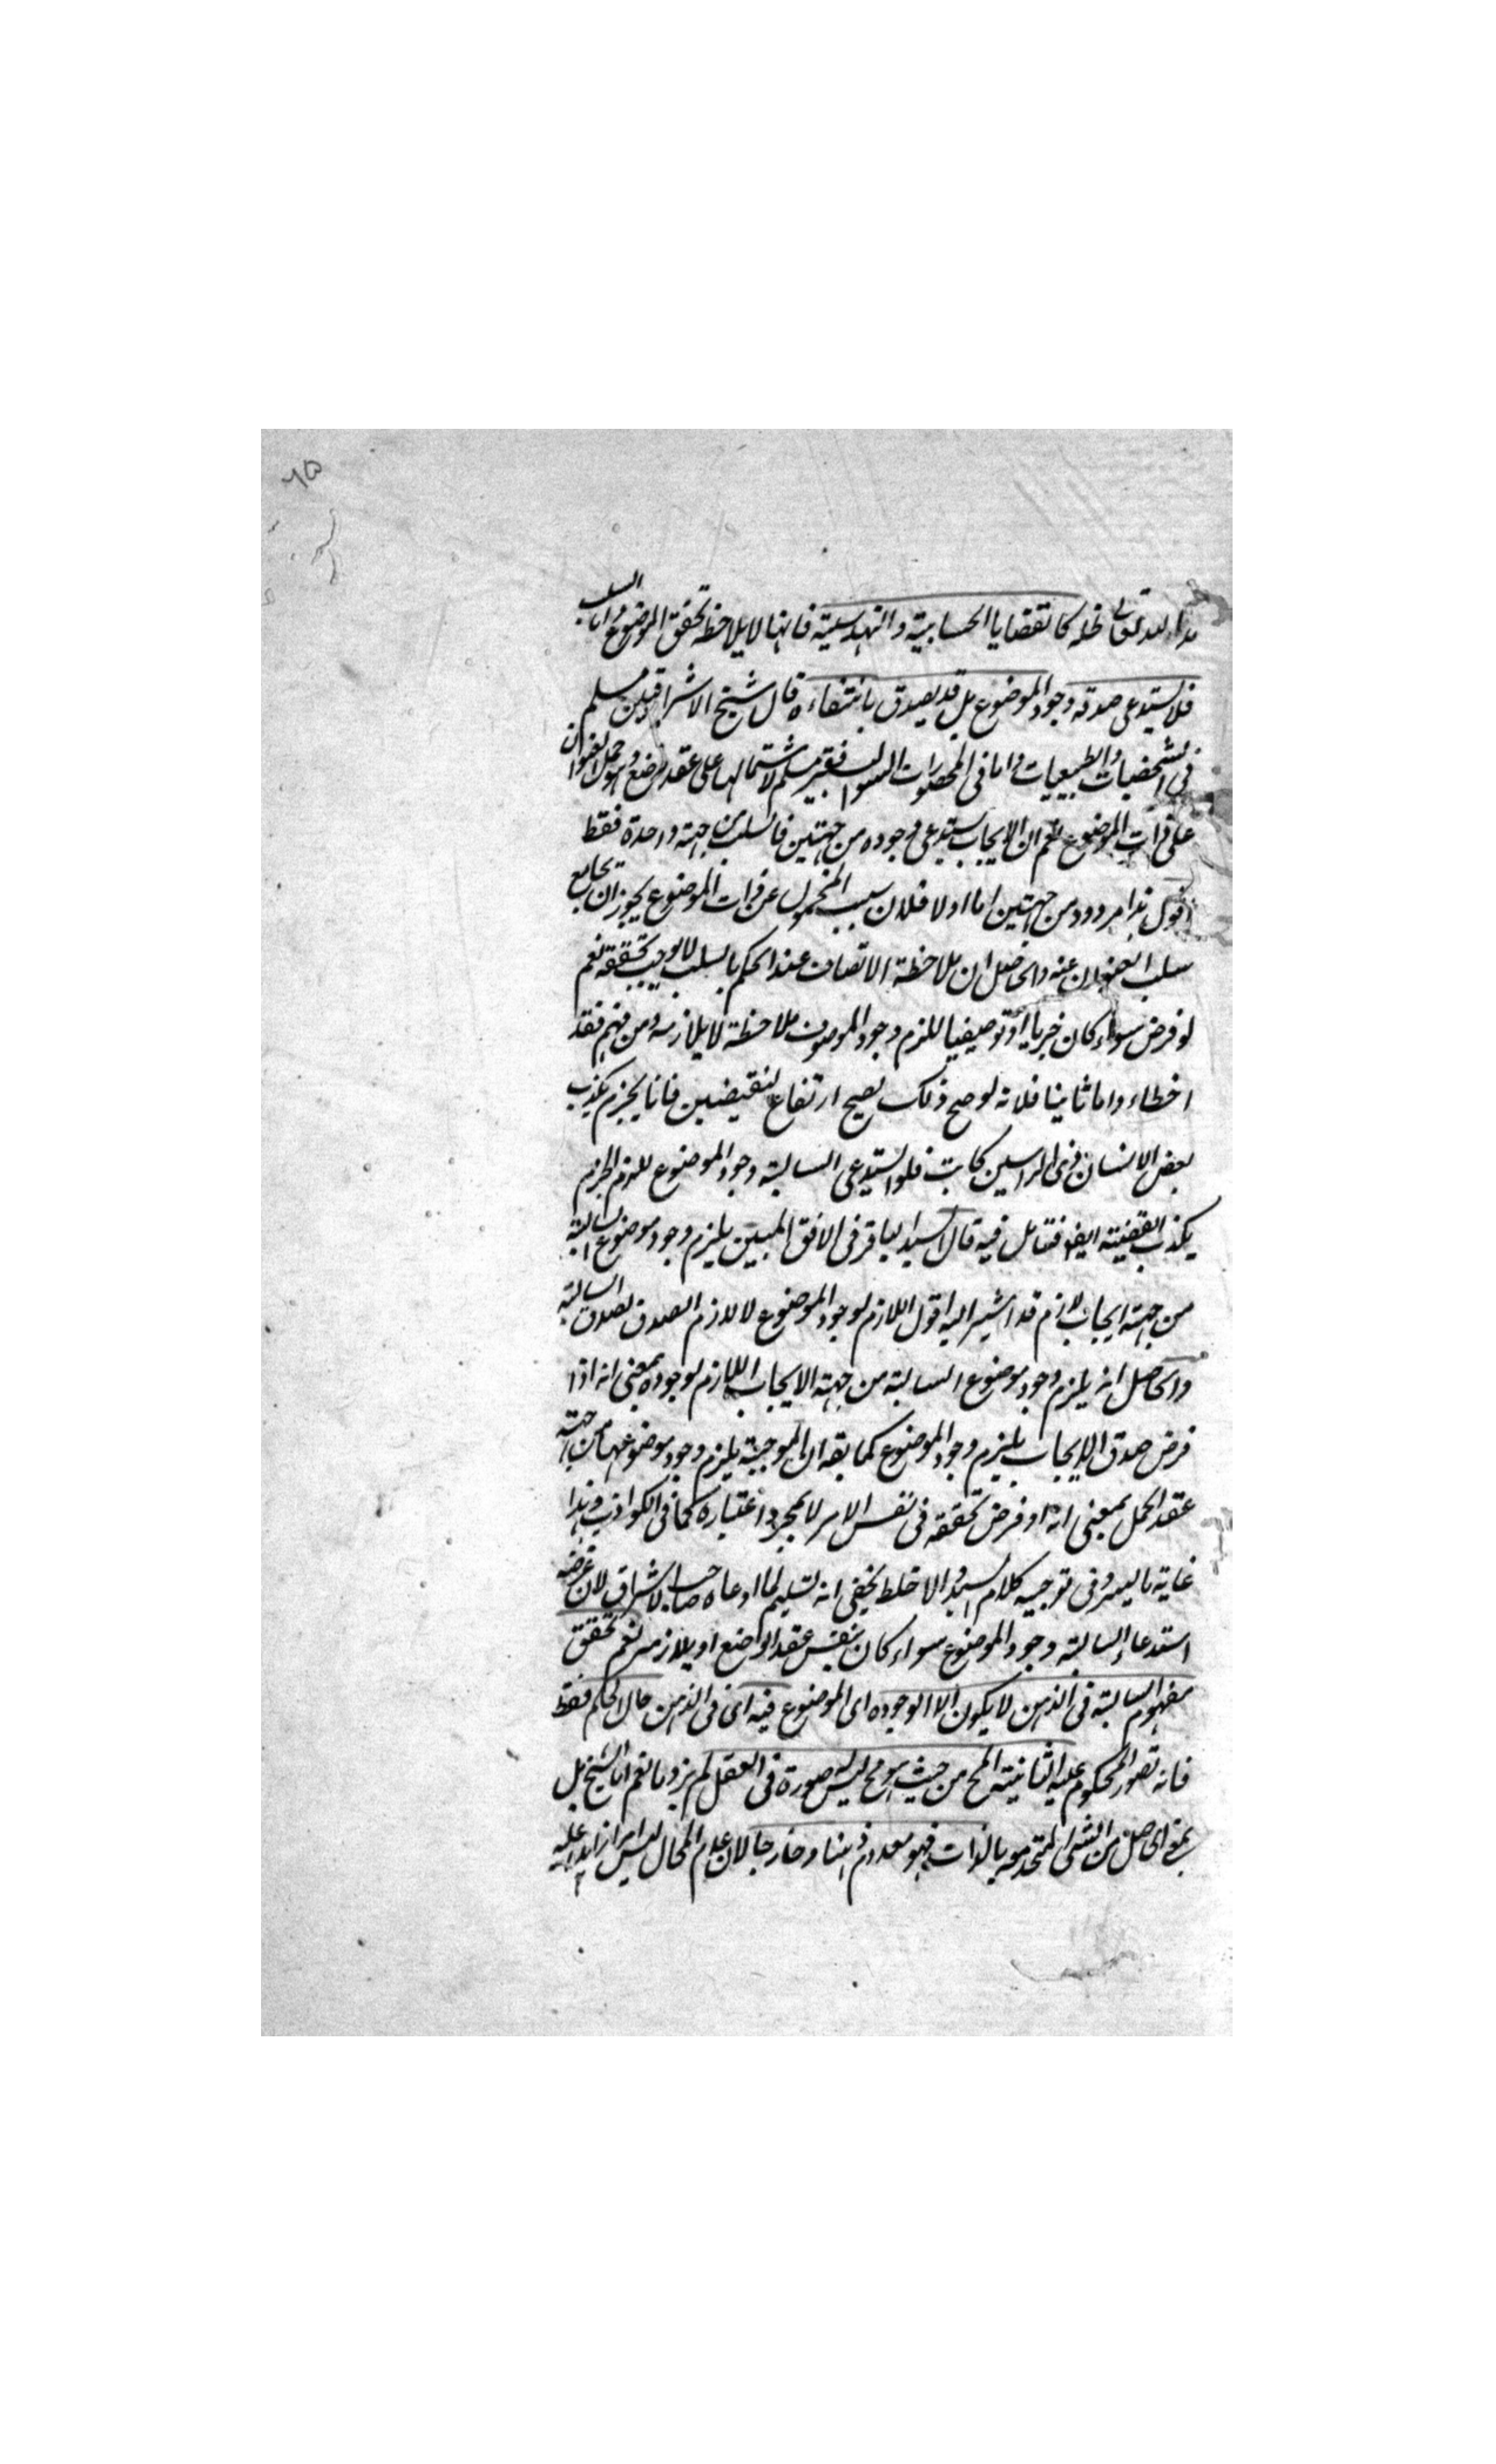 ٦٥
مد الله تعالى ظله كالقضايا الحسابية والهندسية فانها لا يلاحظ تحقق الموضوع واما السلب
فلا يستدعى صدقه وجود الموضوع بل قد يصدق بانتفاءه قال شيخ الاشراقيين مسلم
فى الشخصيات والطبيعيات واما فى المحصورات السوالب فغير مسلم لاشتمالها على عقد وضع وهو حمل العنوان
على ذات الموضوع نعم ان الايجاب يستدعى وجوده من جهتين فالسلب من جهة واحدة فقط
اقول هذا مردود من جهتين اما اولا فلان سلب المحمول عن ذات الموضوع يجوز ان يجامع
سلب العنوان عنه والحاصل ان ملاحظة الاتصاف عند الحكم بالسلب لا يوجب تحققه نعم
لو فرض سواء كان خبريا او توصيفيا للزم وجود الموصوف ملاحظة لا يلازمه ومن فهم فقد
اخطاء واما ثانيا فلانه لو صح ذلك لصح ارتفاع النقيضين فانا نجزم بكذب
بعض الانسان ذى الراسين كاتب فلو استدعى السالبة وجود الموضوع للزم الجزم
بكذب القضية ايضا فتامل فيه قال السيد الباقر فى الافق المبين يلزم وجود موضوع السالبة
من جهة ايجاب لازم قد اشير اليه اقول اللازم لوجود الموضوع لا لازم الصدق لصدق السالبة
والحاصل انه يلزم وجود موضوع السالبة من جهة الايجاب اللازم لوجوده بمعنى انه اذا
فرض صدق الايجاب يلزم وجود الموضوع كما يقه ان الموجبة يلزم وجود موضوعها من جهة
عقد الحمل بمعنى انه لو فرض تحققه فى نفس الامر لا بمجرد اعتباره كما فى الكواذب وهذا
غاية ما تيسر فى توجيه كلام السيد والا خلط يخفى انه تسليم لما ادعاه صاحب الاشراق لان غرضه
استدعاء السالبة وجود الموضوع سواء كان بنفس عقد الوضع او بلازمه نعم تحقق
مفهوم السالبة فى الذهن لا يكون الا الوجوده اى الموضوع فيه اى فى الذهن حال الحكم فقط
فانه تصور المحكوم عليه الثانية المح من حيث هو مح ليس له صورة فى العقل لم يزد ما نعم انا الشيخ بل
بمعنى الحاصل من الشى المتحد معه بالذات فهو معدوم ذهنا وخارجا لان علم المحال ليس امرا زايدا عليه